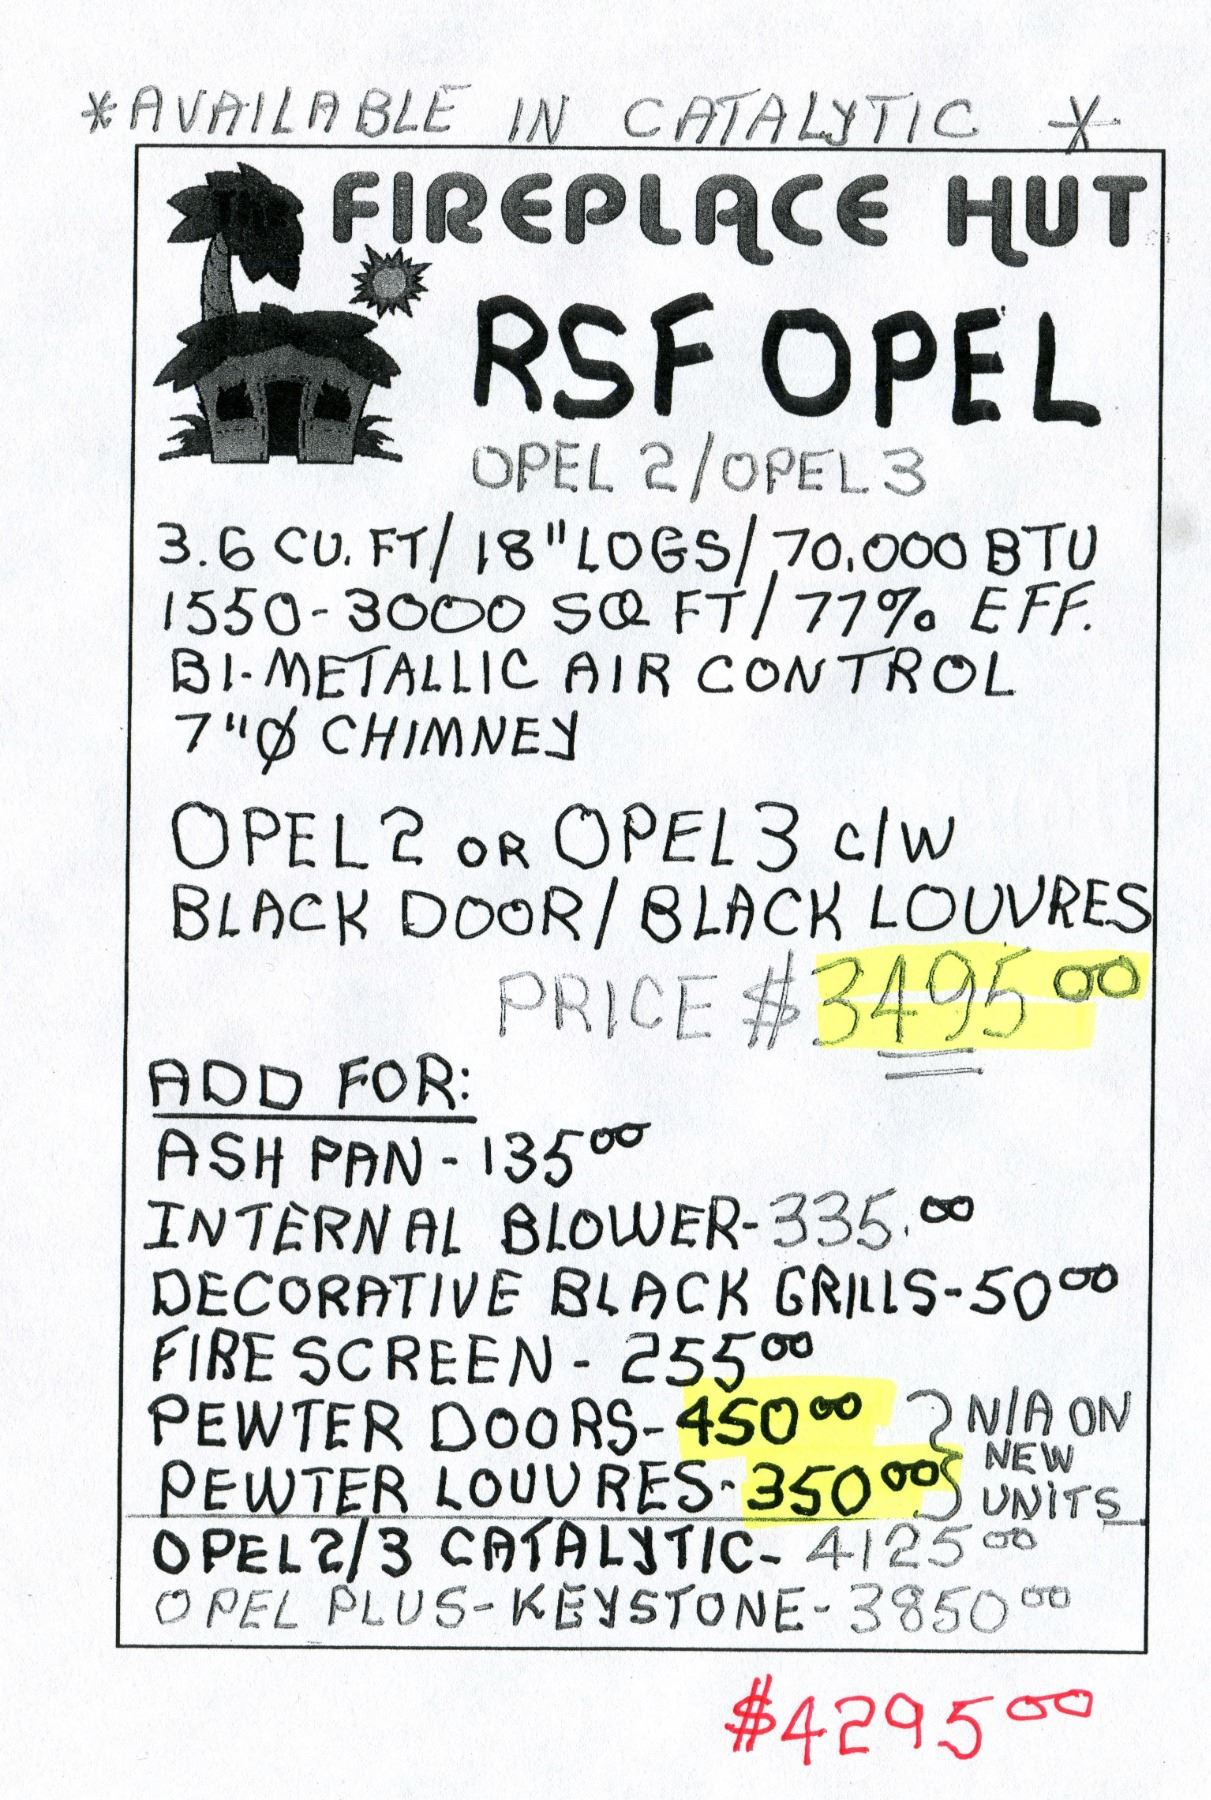 *AVAILABLE IN CATALYTIC *
The FIREPLACE HUT
RSF OPEL
OPEL 2/OPEL 3
3.6 CU. FT/ 18" LOGS/ 70,000 BTU
1550-3000 SQ FT/ 77% EFF.
BI-METALLIC AIR CONTROL
7"Ø CHIMNEY
OPEL 2 OR OPEL 3 C/W
BLACK DOOR/ BLACK LOUVRES
PRICE $3495.00
ADD FOR:
ASH PAN - 135.00
INTERNAL BLOWER- 335.00
DECORATIVE BLACK GRILLS- 50.00
FIRE SCREEN - 255.00
PEWTER DOORS- 450.00 } N/A ON
PEWTER LOUVRES- 350.00 NEW UNITS
OPEL 2/3 CATALYTIC- 4125.00
OPEL PLUS- KEYSTONE- 3850.00
$4295.00